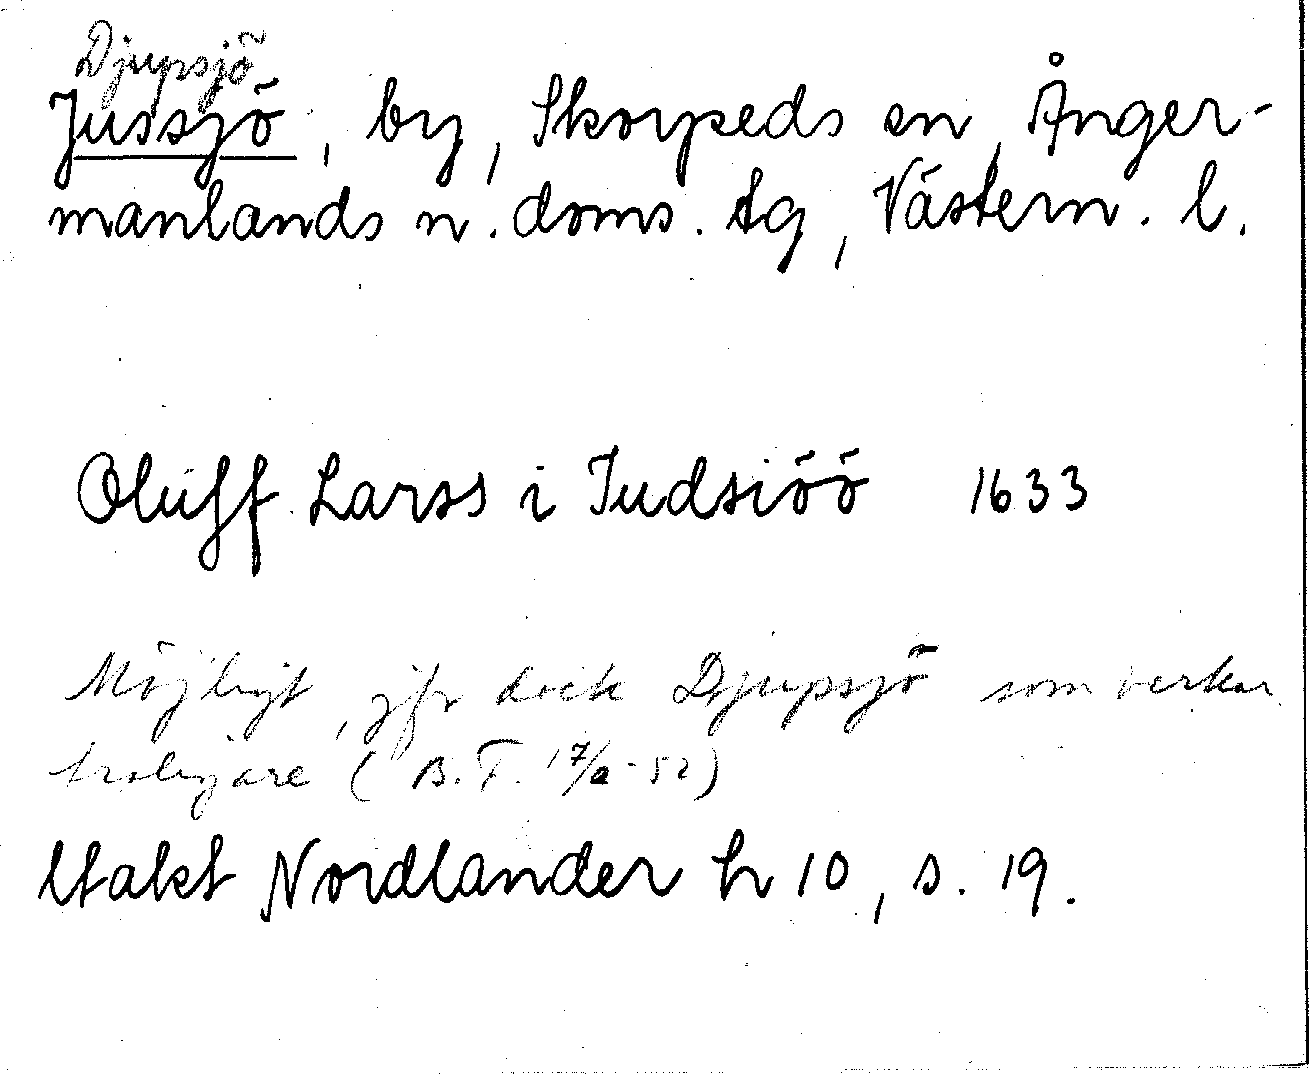 Djupsjö
Jussjö, by, Skorpeds sn, Ånger-
manlands n. doms. tg, Västern. l.
Oluff Larss i Judsiöö 1633
Möjligt, jfr dock Djupsjö som verkar
troligare (B.T. 17/2-52)
ltakt Nordlander h 10, s. 19.